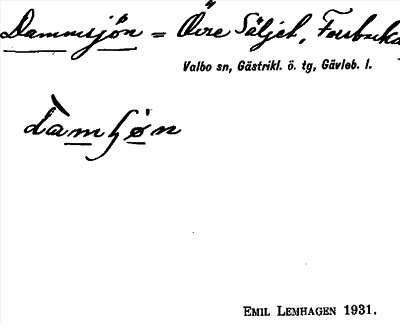 Dammsjön = Övre Säljet, Forsbacka
Valbo sn, Gästrikl. ö. tg, Gävleb. l.
dàmʃøn
EMIL LEMHAGEN 1931.